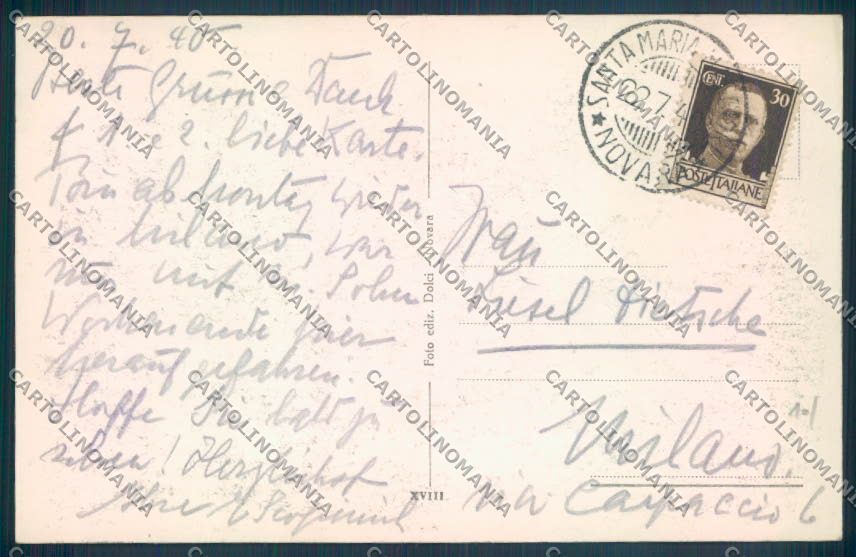 20. 7. 40
Beste Grüsse & Dank
f. 1 e 2. liebe Karte.
Bin ab Montag wieder
in Milano, war
nur mit m. Sohn
Wochenende hier
herauf gefahren.
Hoffe Sie bald zu
sehen! Herzlichst
Ihre
Foto ediz. Dolci Novara
XVIII
SANTA MARIA
22.7.4
★ NOVARA
CENT. 30
POSTE ITALIANE
Frau
Liesel Dietsche
Milano.
via Carpaccio 6
CARTOLINOMANIA